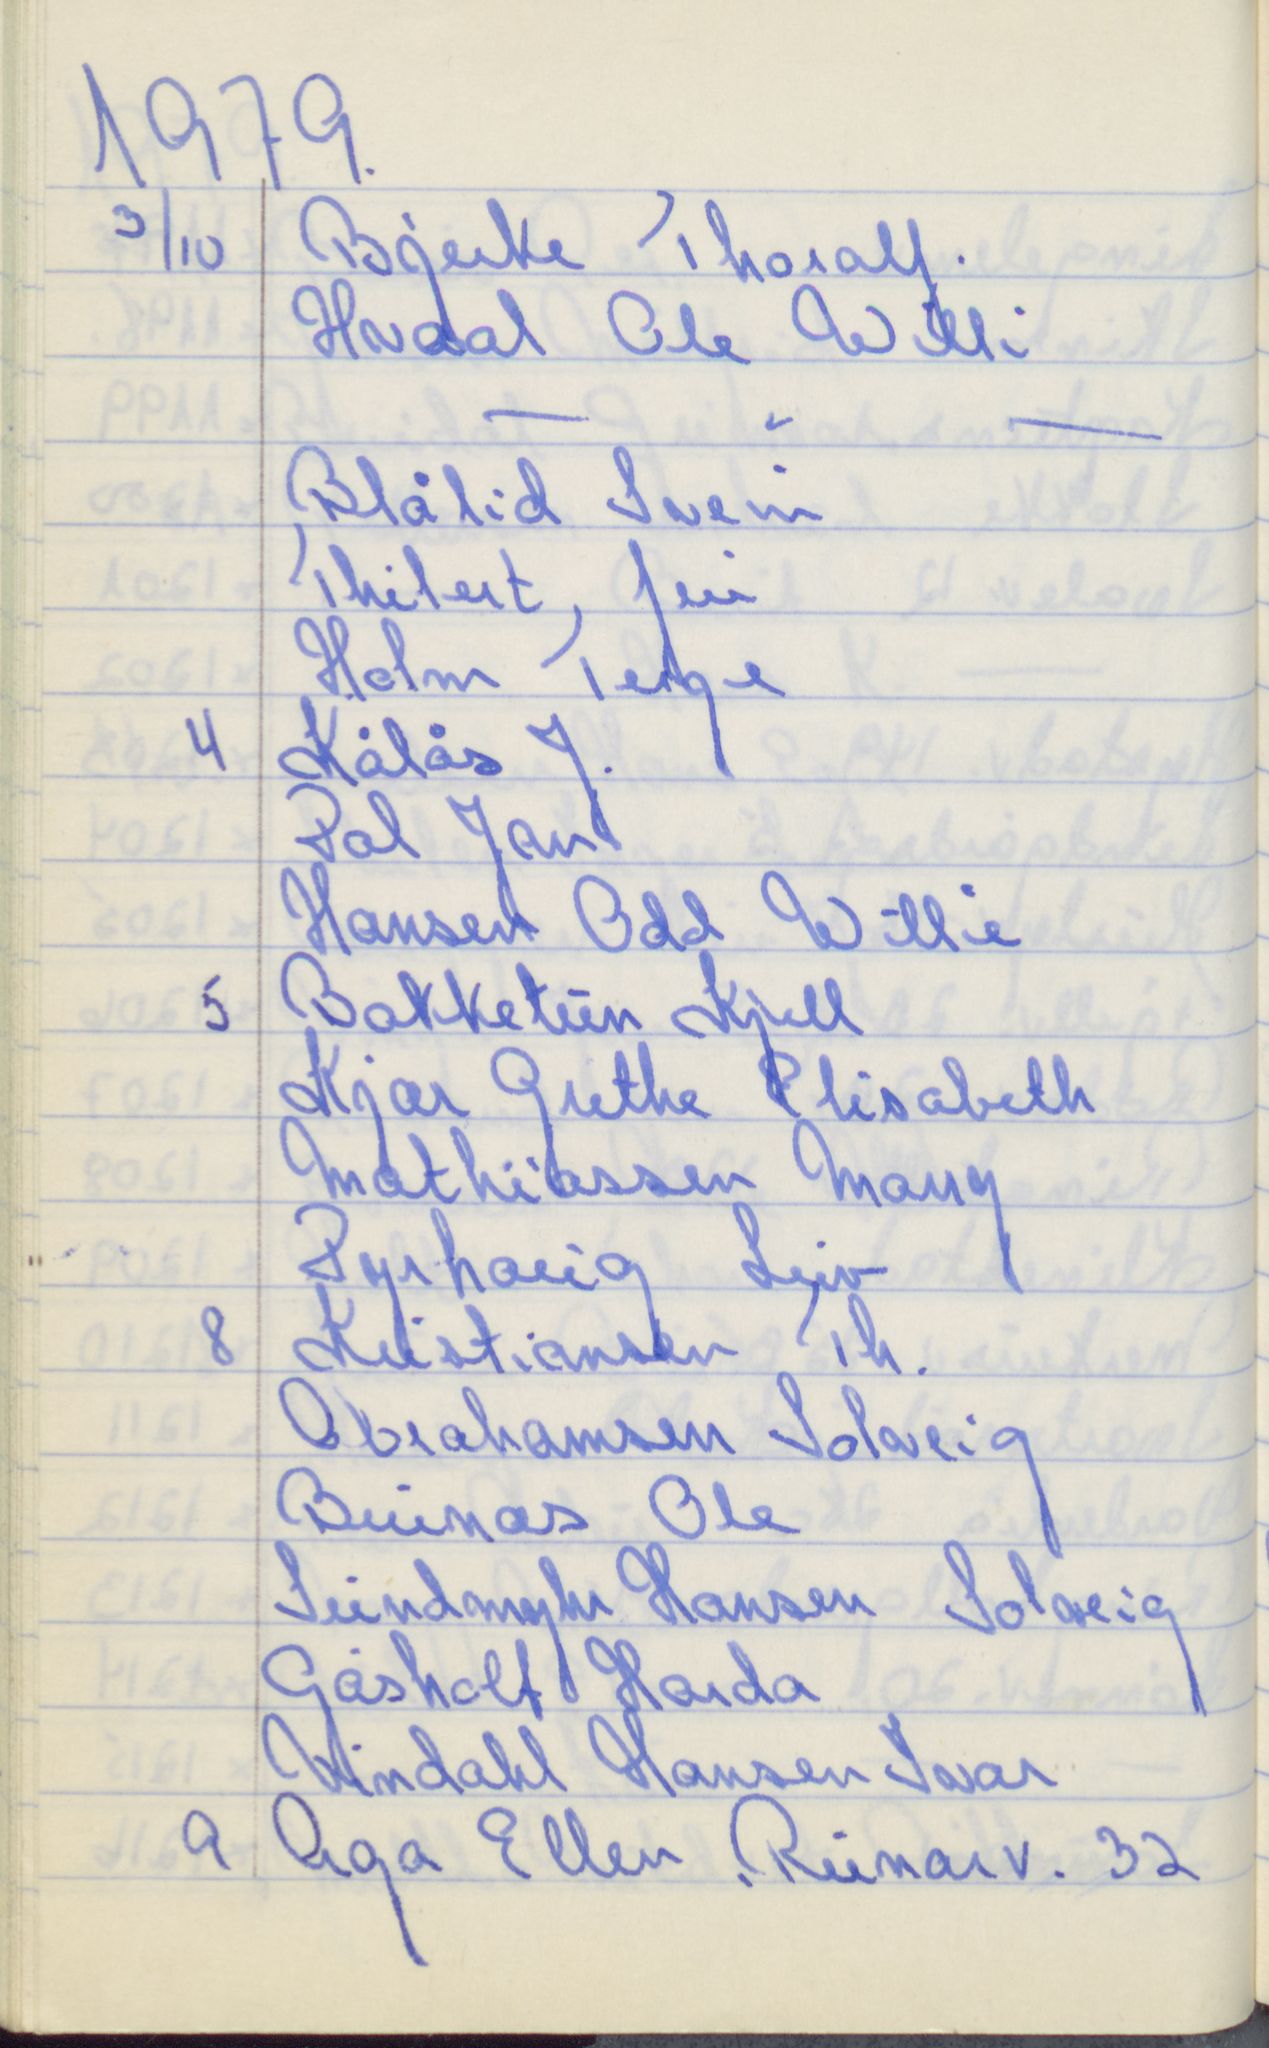 1979.
3/10 Bjerke Thoralf.
Hvaal Ole Willi
— " —
Blålid Svein
Thilert,
Holm Terge
4 Kålås J.
Pal Jan
Hansen Odd Willie
5 Bakketun Kjell
Kjær Grethe Elisabeth
Mathiassen Marry
Pyrhaug Leiv
8 Kristiansen Th.
Abrahamsen Solveig
Buinas Ole
Sundmyhr Hansen Solveig
Gåsholt Harda
Windahl Hansen Ivar
9 Aga Ellen, Runarv. 32